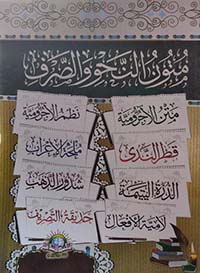 متون النحو والصرف
متن الآجرومية
نظم الآجرومية
قطر الندى
ملحة الإعراب
الدرة اليتيمة
شذور الذهب
لامية الأفعال
حديقة التصريف